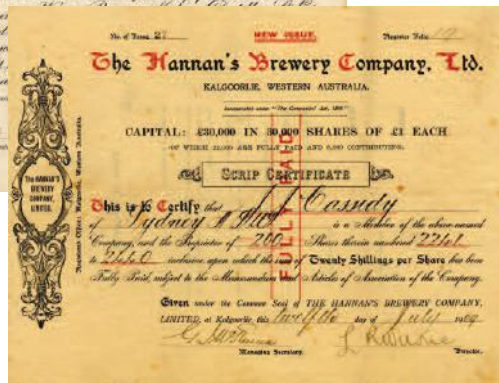 No. of Issued 21
NEW ISSUE.
Register Folio 19
The Hannan's Brewery Company, Ltd.
KALGOORLIE, WESTERN AUSTRALIA.
Incorporated under "The Companies Act, 1893"
CAPITAL: £30,000 IN 30,000 SHARES OF £1 EACH
OF WHICH ARE FULLY PAID AND CONTRIBUTING.
SCRIP CERTIFICATE
This is to Certify that Cassidy
of Sydney N S W is a Member of the above-named
Company, and the Proprietor of 200 Shares therein numbered 2241
to 2440 inclusive upon which the sum of Twenty Shillings per Share has been
Fully Paid, subject to the Memorandum and Articles of Association of the Company.
Given under the Common Seal of THE HANNAN'S BREWERY COMPANY,
LIMITED, at Kalgoorlie, this twelfth day of July 1909
Managing Secretary.
Director.
FULLY PAID
The HANNAN'S
BREWERY
COMPANY,
LIMITED.
Registered Office: Kalgoorlie, Western Australia.